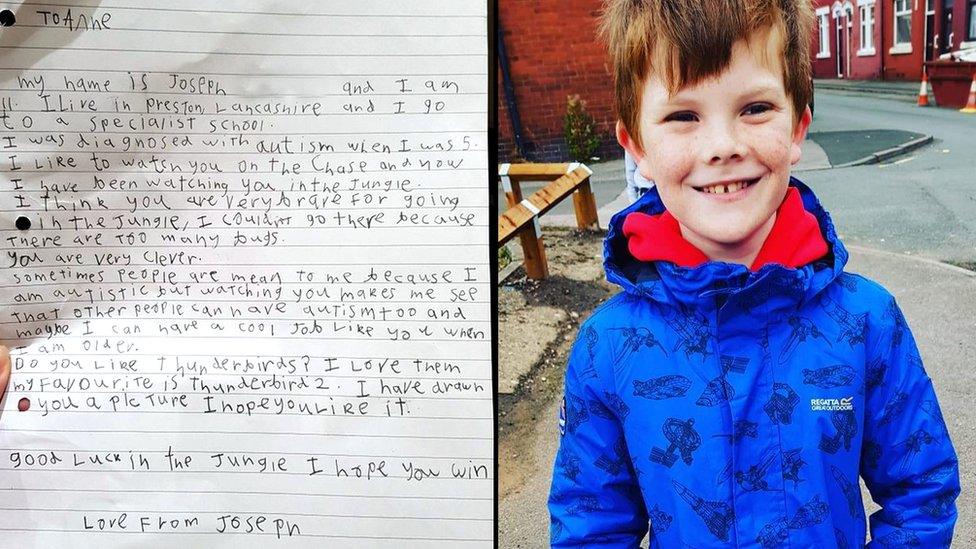 To Anne
my name is Joseph and I am
11. I live in preston, Lancashire and I go
to a specialist school.
I was diagnosed with autism when I was 5.
I like to watch you on the Chase and now
I have been watching you in the Jungle.
I think you are very brave for going
in the Jungle, I couldn't go there because
there are too many bugs.
you are very clever.
sometimes people are mean to me because I
am autistic but watching you makes me see
that other people can have autism too and
maybe I can have a cool job like you when
I am older.
Do you like Thunderbirds? I Love them
my favourite is Thunderbird 2. I have drawn
you a picture I hope you like it.
good luck in the Jungle I hope you win
Love From Joseph
REGATTA
GREAT OUTDOORS